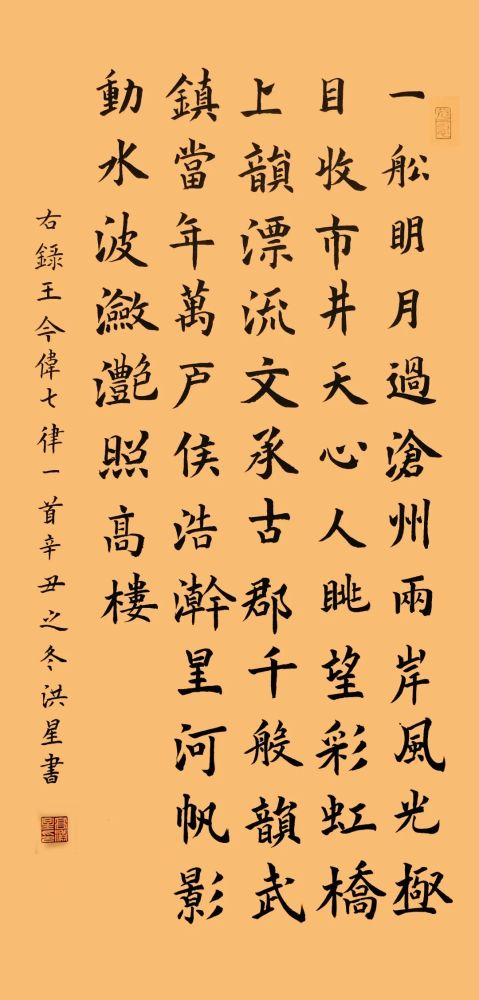 一船明月過滄州兩岸風光極
目收市井天心人眺望彩虹橋
上韻漂流文承古郡千般韻武
鎮當年萬戸侯浩瀚星河帆影
動水波瀲灧照高樓
右錄王今偉七律一首辛丑之冬洪星書